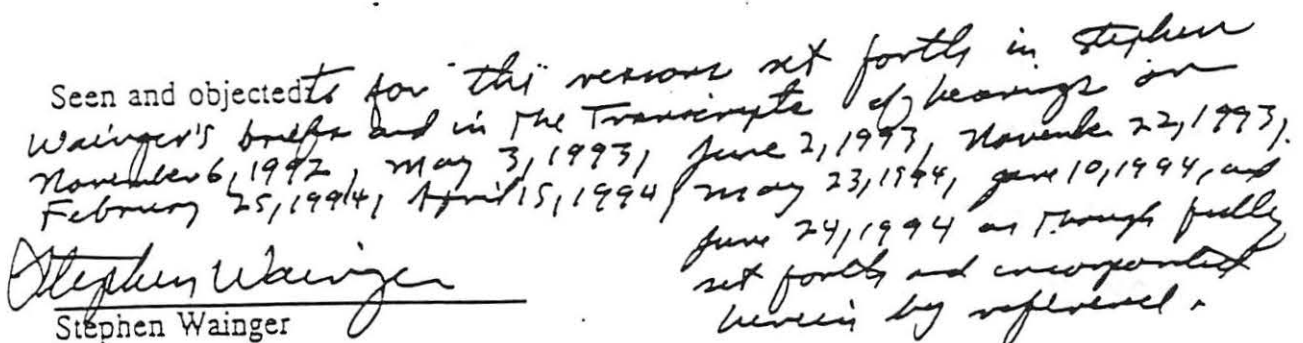 Seen and objected to for the reasons set forth in Stephen
Wainger's briefs and in the Transcripts of hearings on
November 6, 1992, May 3, 1993, June 2, 1993, November 22, 1993,
February 25, 1994, April 15, 1994, May 23, 1994, June 10, 1994, and
June 24, 1994 as though fully
set forth and incorporated
herein by reference.
Stephen Wainger
Stephen Wainger